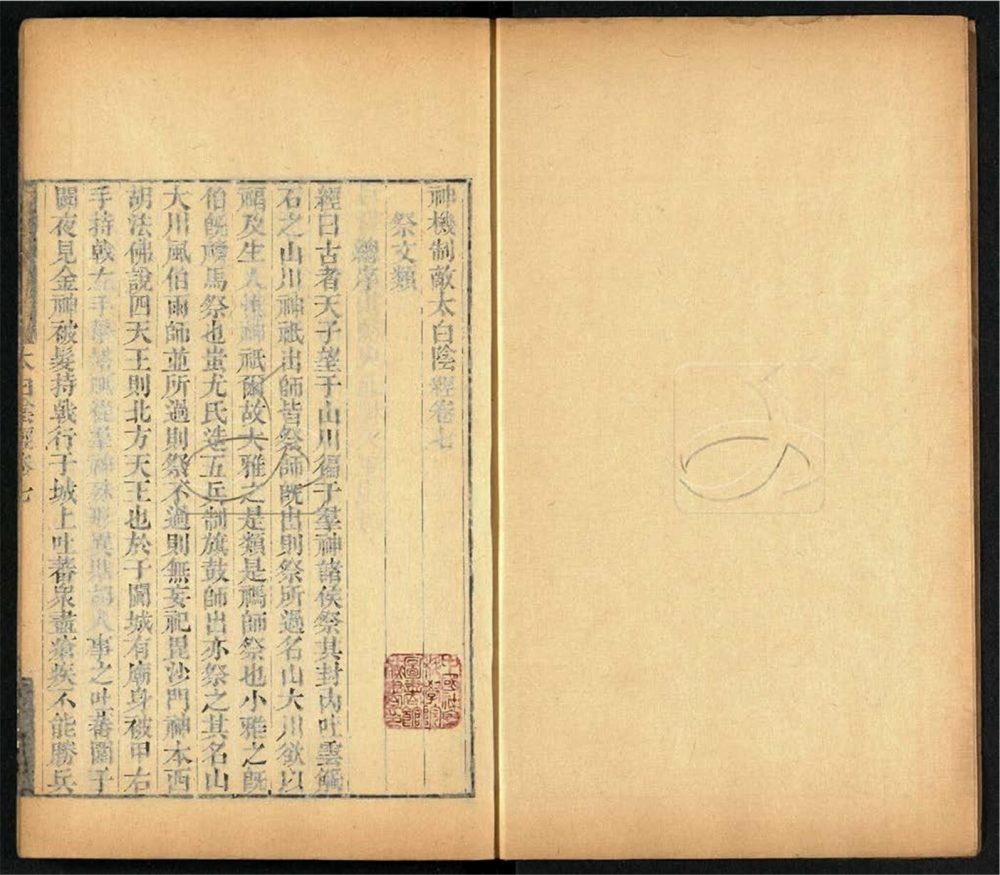 神機制敵太白陰經卷七
祭文類
總序
經曰古者天子望于山川徧于羣神諸侯祭其封内吐雲觸
石之山川神祇出師皆祭師既出則祭所過名山大川欲以
福及生人神祇爾故大雅之是類是禡師祭也小雅之既
伯既禱馬祭也蚩尤氏造五兵制旗鼓師出亦祭之其名山
大川風伯雨師並所過則祭不過則無妄祀毘沙門神本西
胡法佛說四天王則北方天王也於于闐城有廟身被甲右
手持戟左手從羣神殊形異胡人事之吐蕃圍于
闐夜見金神被髮持戟行于城上吐蕃衆盡瘡疾不能勝兵
太白陰經卷七